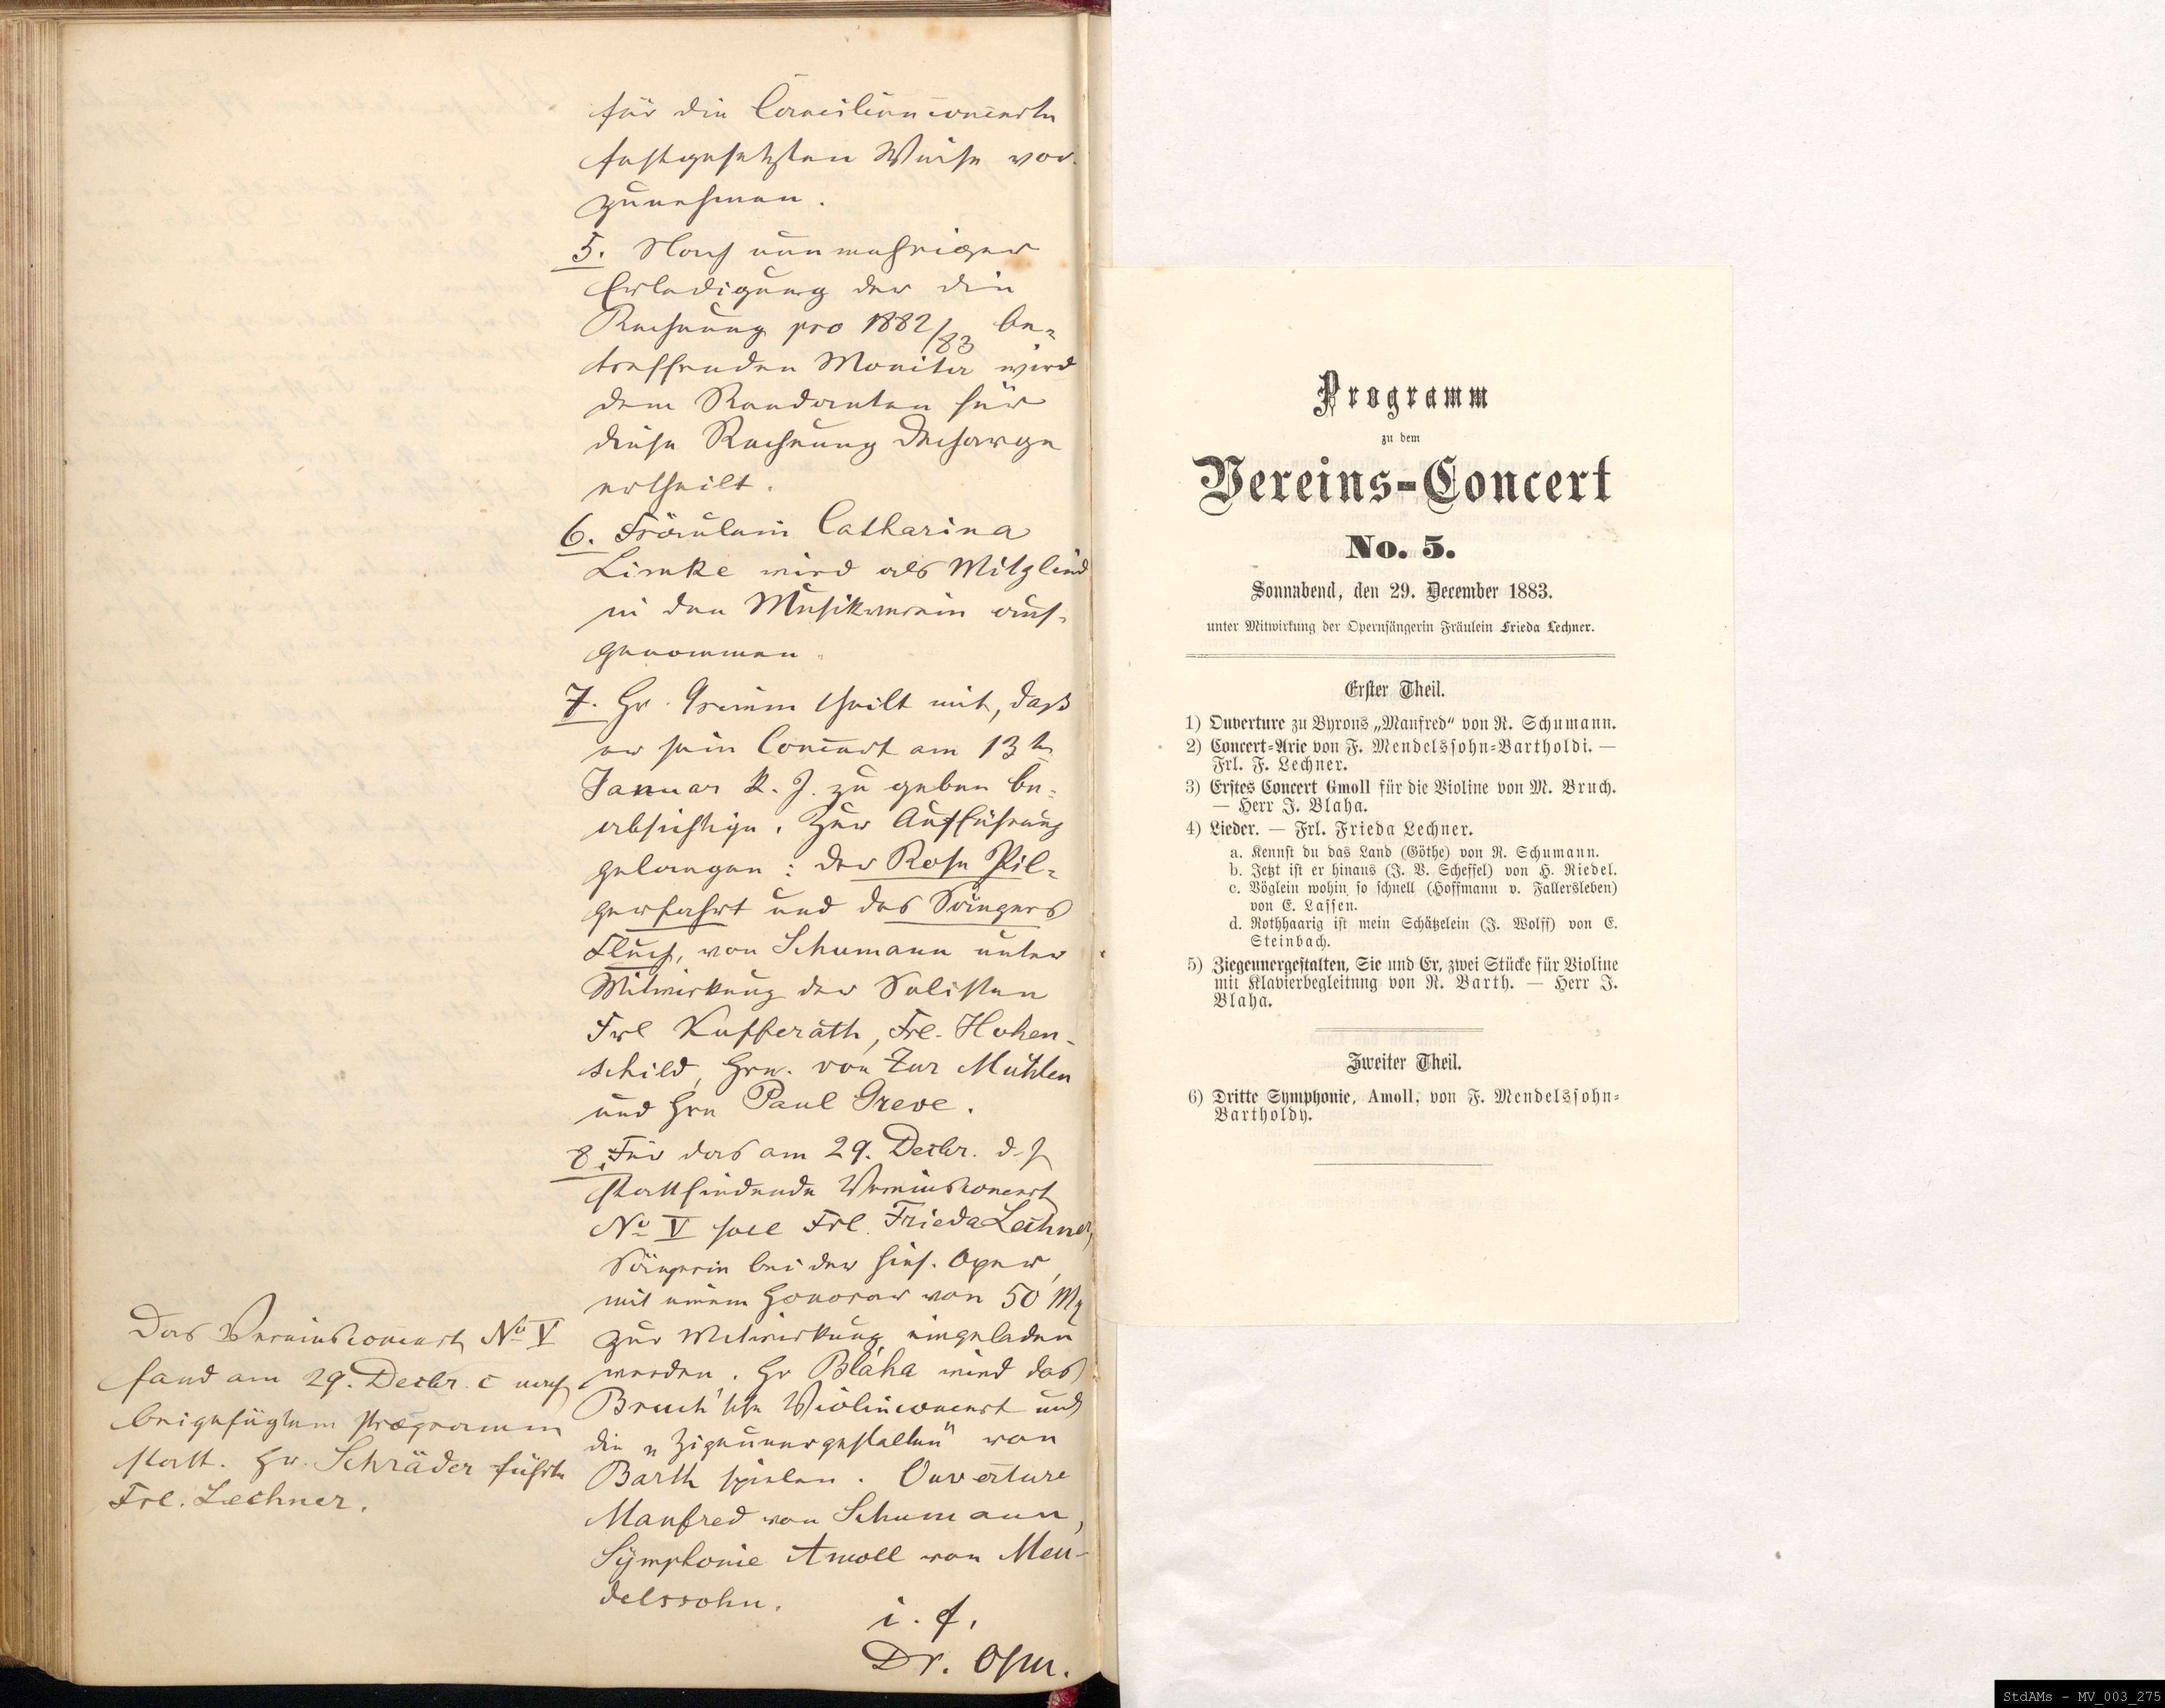 für die Caecilienconcerte
festgesetzten Weise vor-
zunehmen.
5. Nach nunmehriger
Erledigung der die
Rechnung pro 1882/83 be-
treffenden Monita wird
dem Rendanten für
diese Rechnung Decharge
ertheilt.
6. Fräulein Catharina
Limke wird als Mitglied
in den Musikverein auf-
genommen.
7. Hr. Grimm theilt mit, daß
er sein Concert am 13 tn
Januar k. J. zu geben be-
absichtige. Zur Aufführung
gelangen: der Rose Pil-
gerfahrt und des Sängers
Fluch, von Schumann unter
Mitwirkung der Solisten
Frl Kufferath, Frl. Hohen-
schild, Hrn. von Zur Mühlen
und Hrn Paul Greve.
8. Für das am 29. Decbr. d. J
stattfindende Vereinsconcert
No V soll Frl. Frieda Lechner,
Sängerin bei der hies. Oper,
mit einem Honorar von 50 Mk
zur Mitwirkung eingeladen
werden. Hr Bláha wird das
Bruch'sche Violinconcert und
die "Zigeunergestalten" von
Barth spielen. Ouverture
Manfred von Schumann,
Symphonie Amoll von Men-
delssohn.
i. f.
Dr. Ohm.
Das Vereinsconcert No V
fand am 29. Decbr. c nach
beigefügtem Programm
statt. Hr. Schräder führte
Frl. Lechner.
Programm
zu dem
Vereins-Concert
No. 5.
Sonnabend, den 29. December 1883.
unter Mitwirkung der Opernsängerin Fräulein Frieda Lechner.
Erster Theil.
1) Ouverture zu Byrons „Manfred“ von R. Schumann.
2) Concert-Arie von F. Mendelssohn-Bartholdi. —
Frl. F. Lechner.
3) Erstes Concert Gmoll für die Violine von M. Bruch.
— Herr J. Blaha.
4) Lieder. — Frl. Frieda Lechner.
a. Kennst du das Land (Göthe) von R. Schumann.
b. Jetzt ist er hinaus (J. V. Scheffel) von H. Riedel.
c. Vöglein wohin so schnell (Hoffmann v. Fallersleben)
von E. Lassen.
d. Rothhaarig ist mein Schätzelein (J. Wolff) von E.
Steinbach.
5) Ziegeunergestalten, Sie und Er, zwei Stücke für Violine
mit Klavierbegleitung von R. Barth. — Herr J.
Blaha.
Zweiter Theil.
6) Dritte Symphonie, Amoll, von F. Mendelssohn-
Bartholdy.
StdAMs - MV_003_275